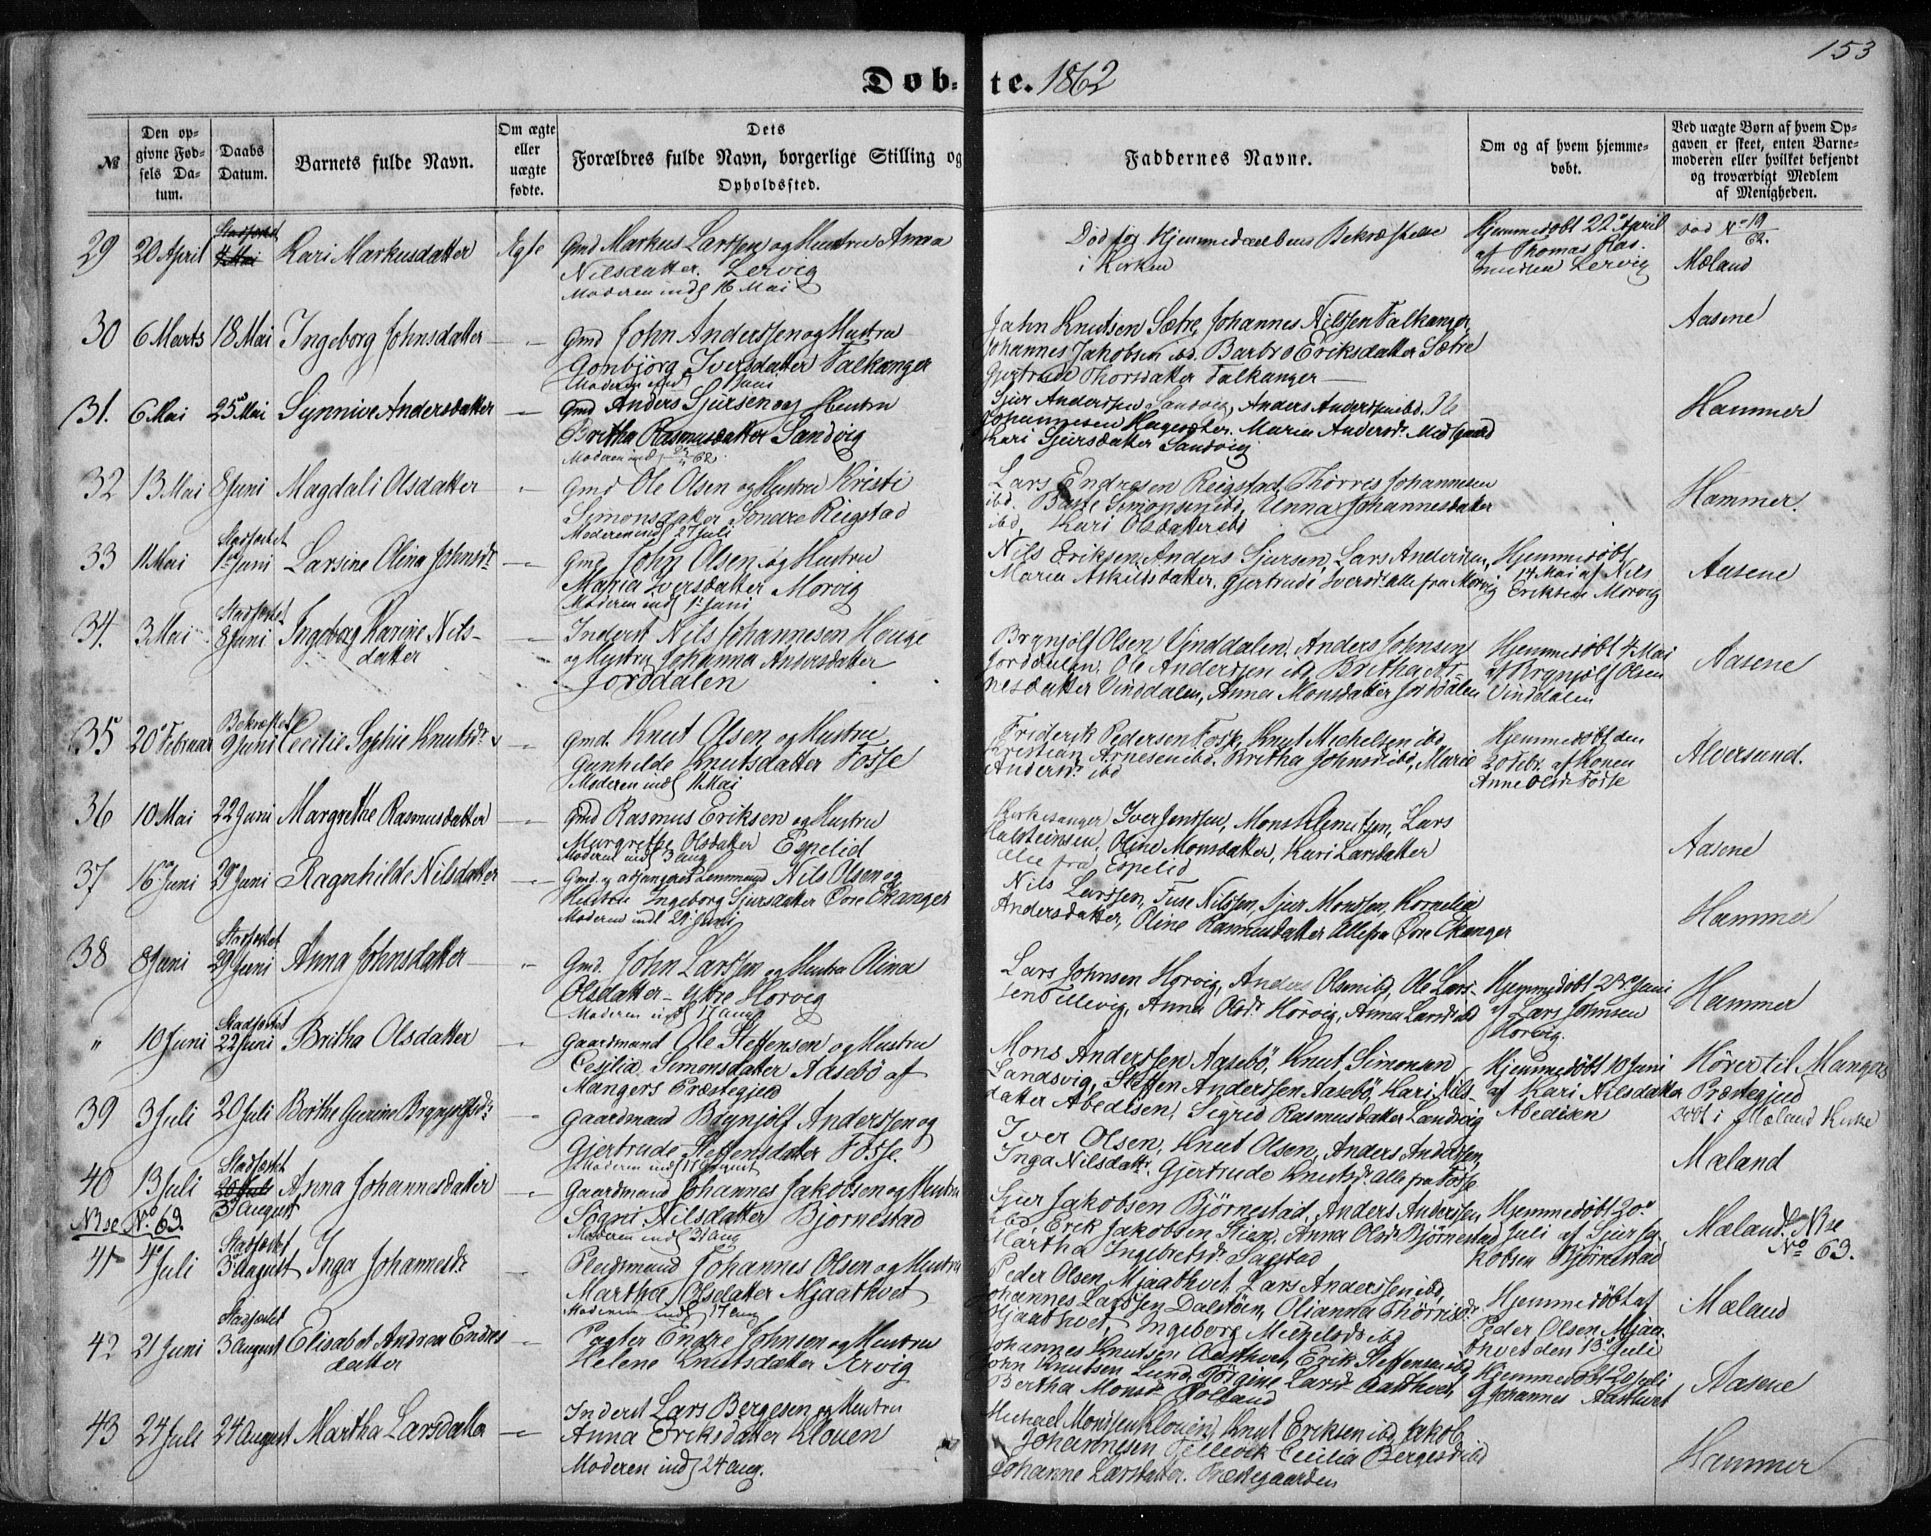 153
Døb- te. 1862
№
Den opgivne Fødsels Datum.
Daabs Datum.
Barnets fulde Navn.
Om ægte eller uægte fødte.
Dets Forældres fulde Navn, borgerlige Stilling og Opholdssted.
Faddernes Navne.
Om og af hvem hjemmedøbt.
Ved uægte Børn af hvem Opgaven er skeet, enten Barnemoderen eller hvilket bekjendt og troværdigt Medlem af Menigheden.
29 20 April Stadfæstet 4 Mai Kari Markusdatter Ægte Gmd Markus Larssen og Hustru Anna
Nilsdatter. Lervig
Moderen indl 16 Mai
Død før Hjemmedaabens Bekræftelse
i Kirken
Hjemmedøbt 22 April
af Thomas Rasmussen Lervig
død No 19/62.
Mæland
30 6 Marts 18 Mai Ingeborg Johnsdatter Gmd John Anderssen og Hustru
Gonbjørg Iversdatter Falkanger
Moderen indl Juni
John Knutsen Sætre, Johannes Nilssen Falkanger,
Johannes Jakobsen ibd. Barbro Eriksdatter Sætre
Gjertrude Thorsdatter Falkanger
Aasene
31. 6 Mai 25 Mai Synnive Andersdatter Gmd Anders Sjursen og Hustru
Britha Rasmusdatter Sandvig
Sjur Anderssen Sandvig, Anders Anderssen ibd. Ole
Johannesen Hagesæter. Maria Andersdr Midtgaard
Kari Sjursdatter Sandvig
Hammer
32 13 Mai 8 Juni Magdali Olsdatter Gmd Ole Olsen og Hustru Kristi
Simonsdatter Søndre Reigstad
Moderen indl 27 Juli
Lars Endresen Reigstad Thørris Johannesen
ibd. Baste Simonsen ibd, Unna Johannesdatter
ibd, Kari Olsdatter ibd
Hammer.
33 11 Mai Stadfæstet 1 Juni Larsine Olina Johnsdr Gmd John Olsen og Hustru
Maria Iversdatter Morvig
Moderen indl 1 Juni
Nils Eriksen, Anders Sjursen, Lars Andersen,
Maria Askildsdatter, Gjertrude Iversd alle fra Morvig
Hjemmedøbt
14 Mai af Nils
Eriksen Morvig
Aasene
34. 3 Mai Stadfæstet 8 Juni Ingeborg Karine Nils-
datter
Inderst Nils Johannesen Houge
og Hustru Johanna Andersdatter
Jorddalen
Brynjolf Olsen Vinddalen, Anders Johnsen
Jorddalen, Ole Anderssen ibd, Britha Ar-
nesdatter Vinddalen, Anna Monsdatter Jorddalen
Hjemmedøbt 4 Mai
af Brynjolf Olsen
Vinddalen
Aasene
35 20 Februar Bekræftet 9 Juni Cecilie Sophie Knutsdr Gmd. Knut Olsen og Hustru
Gunhilde Knutsdatter Fosse
Moderen indl 11 Mai
Friderik Pedersen Fosse, Knut Michelsen ibd
Kristian Arnesen ibd. Britha Johnsd ibd, Marie
Andersdr ibd
Hjemmedøbt den
20 Febr. af Konen
Anne Olsdr Fosse
Alversund.
36 10 Mai 22 Juni Margrethe Rasmusdatter Gmd Rasmus Eriksen og Hustru
Margrethe Olsdatter Espelid
Moderen indl 3 aug
Kirkesanger Iver Jenssen, Mons Knutsen, Lars
Halsteinsen, Oline Monsdatter, Kari Larsdatter
alle fra Espelid
Aasene
37 16 Juni 29 Juni Ragnhilde Nilsdatter Gmd. og Lensmand Nils Olsen og
Hustru Ingeborg Sjursdatter Øvre Ekanger
Moderen indl 29 Juni
Nils Larssen, Tuse Nilssen, Sjur Monssen, Kornelia
Andersdatter, Oline Rasmusdatter Alle fra Øvre Ekanger
Hammer
38 8 Juni Stadfæstet 29 Juni Anna Johnsdatter Gmd. John Larssen og Hustru Olina
Olsdatter - Ytre Horvig
Moderen indl 17 aug
Lars Johnsen Horvig, Anders Olsen ibd, Ole Lars-
sen Tellevig, Anna Olsdr Horvig, Anna Larsd ibd
Hjemmedøbt 23 Juni
af Lars Johnsen
Horvig.
Hammer
" 10 Juni Stadfæstet 22 Juni Britha Olsdatter Gaardmand Ole Steffensen og Hustru
Cesilia Simonsdatter Aasebö af
Mangers Præstegjeld
Mons Anderssen Aasebö, Knut Simonsen
Landsvig, Steffen Anderssen Aasebö, Kari Nils-
datter Abedisen, Sigrid Rasmusdatter Landsvig
Hjemmedøbt 10 Juni
af Kari Nilsdatter
Abedisen
Hörer til Mangers
Præstegjeld
døbt i Mæland Kirke
39 3 Juli 20 Juli Berthe Gurine Brynjolfsdr Gaardmand Brynjolf Anderssen og
Gjertrude Steffensdatter Fosse.
Moderen indl 17 August
Iver Olsen, Knut Olsen, Anders Andersen,
Inga Nilsdattr, Gjertrude Knutsdr alle fra Fosse
Mæland
40 13 Juli Stadfæstet 20 Juli 3 August Anna Johannesdatter Gaardmand Johannes Jakobsen og Hustru
Sogni Nilsdatter Bjørnestad
Moderen indl 31 aug
NB se No. 63.
Sjur Jakobsen Bjørnestad, Anders Anderssen
ibd, Erik Jakobsen Stien, Anna Olsdr Bjørnestad
Martha Ingebretsdr Sagstad
Hjemmedøbt 20
Juli af Sjur Ja-
kobsen Bjørnestad
Mæland. NB se
No 63.
41 4 Juli Stadfæstet 3 August Inga Johannesdr Pladsmand Johannes Olsen og Hustru
Martha Olsdatter Mjaathvet
Moderen indl 17 aug
Peder Olsen Mjaathvet, Lars Anderssen ibd,
Johannes Larssen Dalstöen, Olianna Thørrisdr
Mjaathvet, Ingeborg Mickelsdr ibd
Hjemmedøbt af
Peder Olsen Mjaa-
thvet den 13 Juli
Mæland
42 21 Juni Stadfæstet 3 August Elisabet Andrea Endres
datter
Pagter Endre Johnsen og Hustru
Helene Knutsdatter
Johannes Knutsen Aasthvet, Erik Steffensen ibd
John Knutsen Lund, Törgine Larsdr Aasthvet,
Bertha Monsdr
Hjemmedøbt 20 Juli
af Johannes Aasthvet
Aasene
43 24 Juli 24 August Martha Larsdatter Inderst Lars Bergesen og Hustru
Anna Eriksdatter Klouen
Moderen indl 24 aug.
Michael Monssen Klouen, Knut Eriksen ibd, Jakob
Johannesen Tellevik Cecilia Bergesd ibd
Johanne Larsdatter. Præstegaarden
Hammer